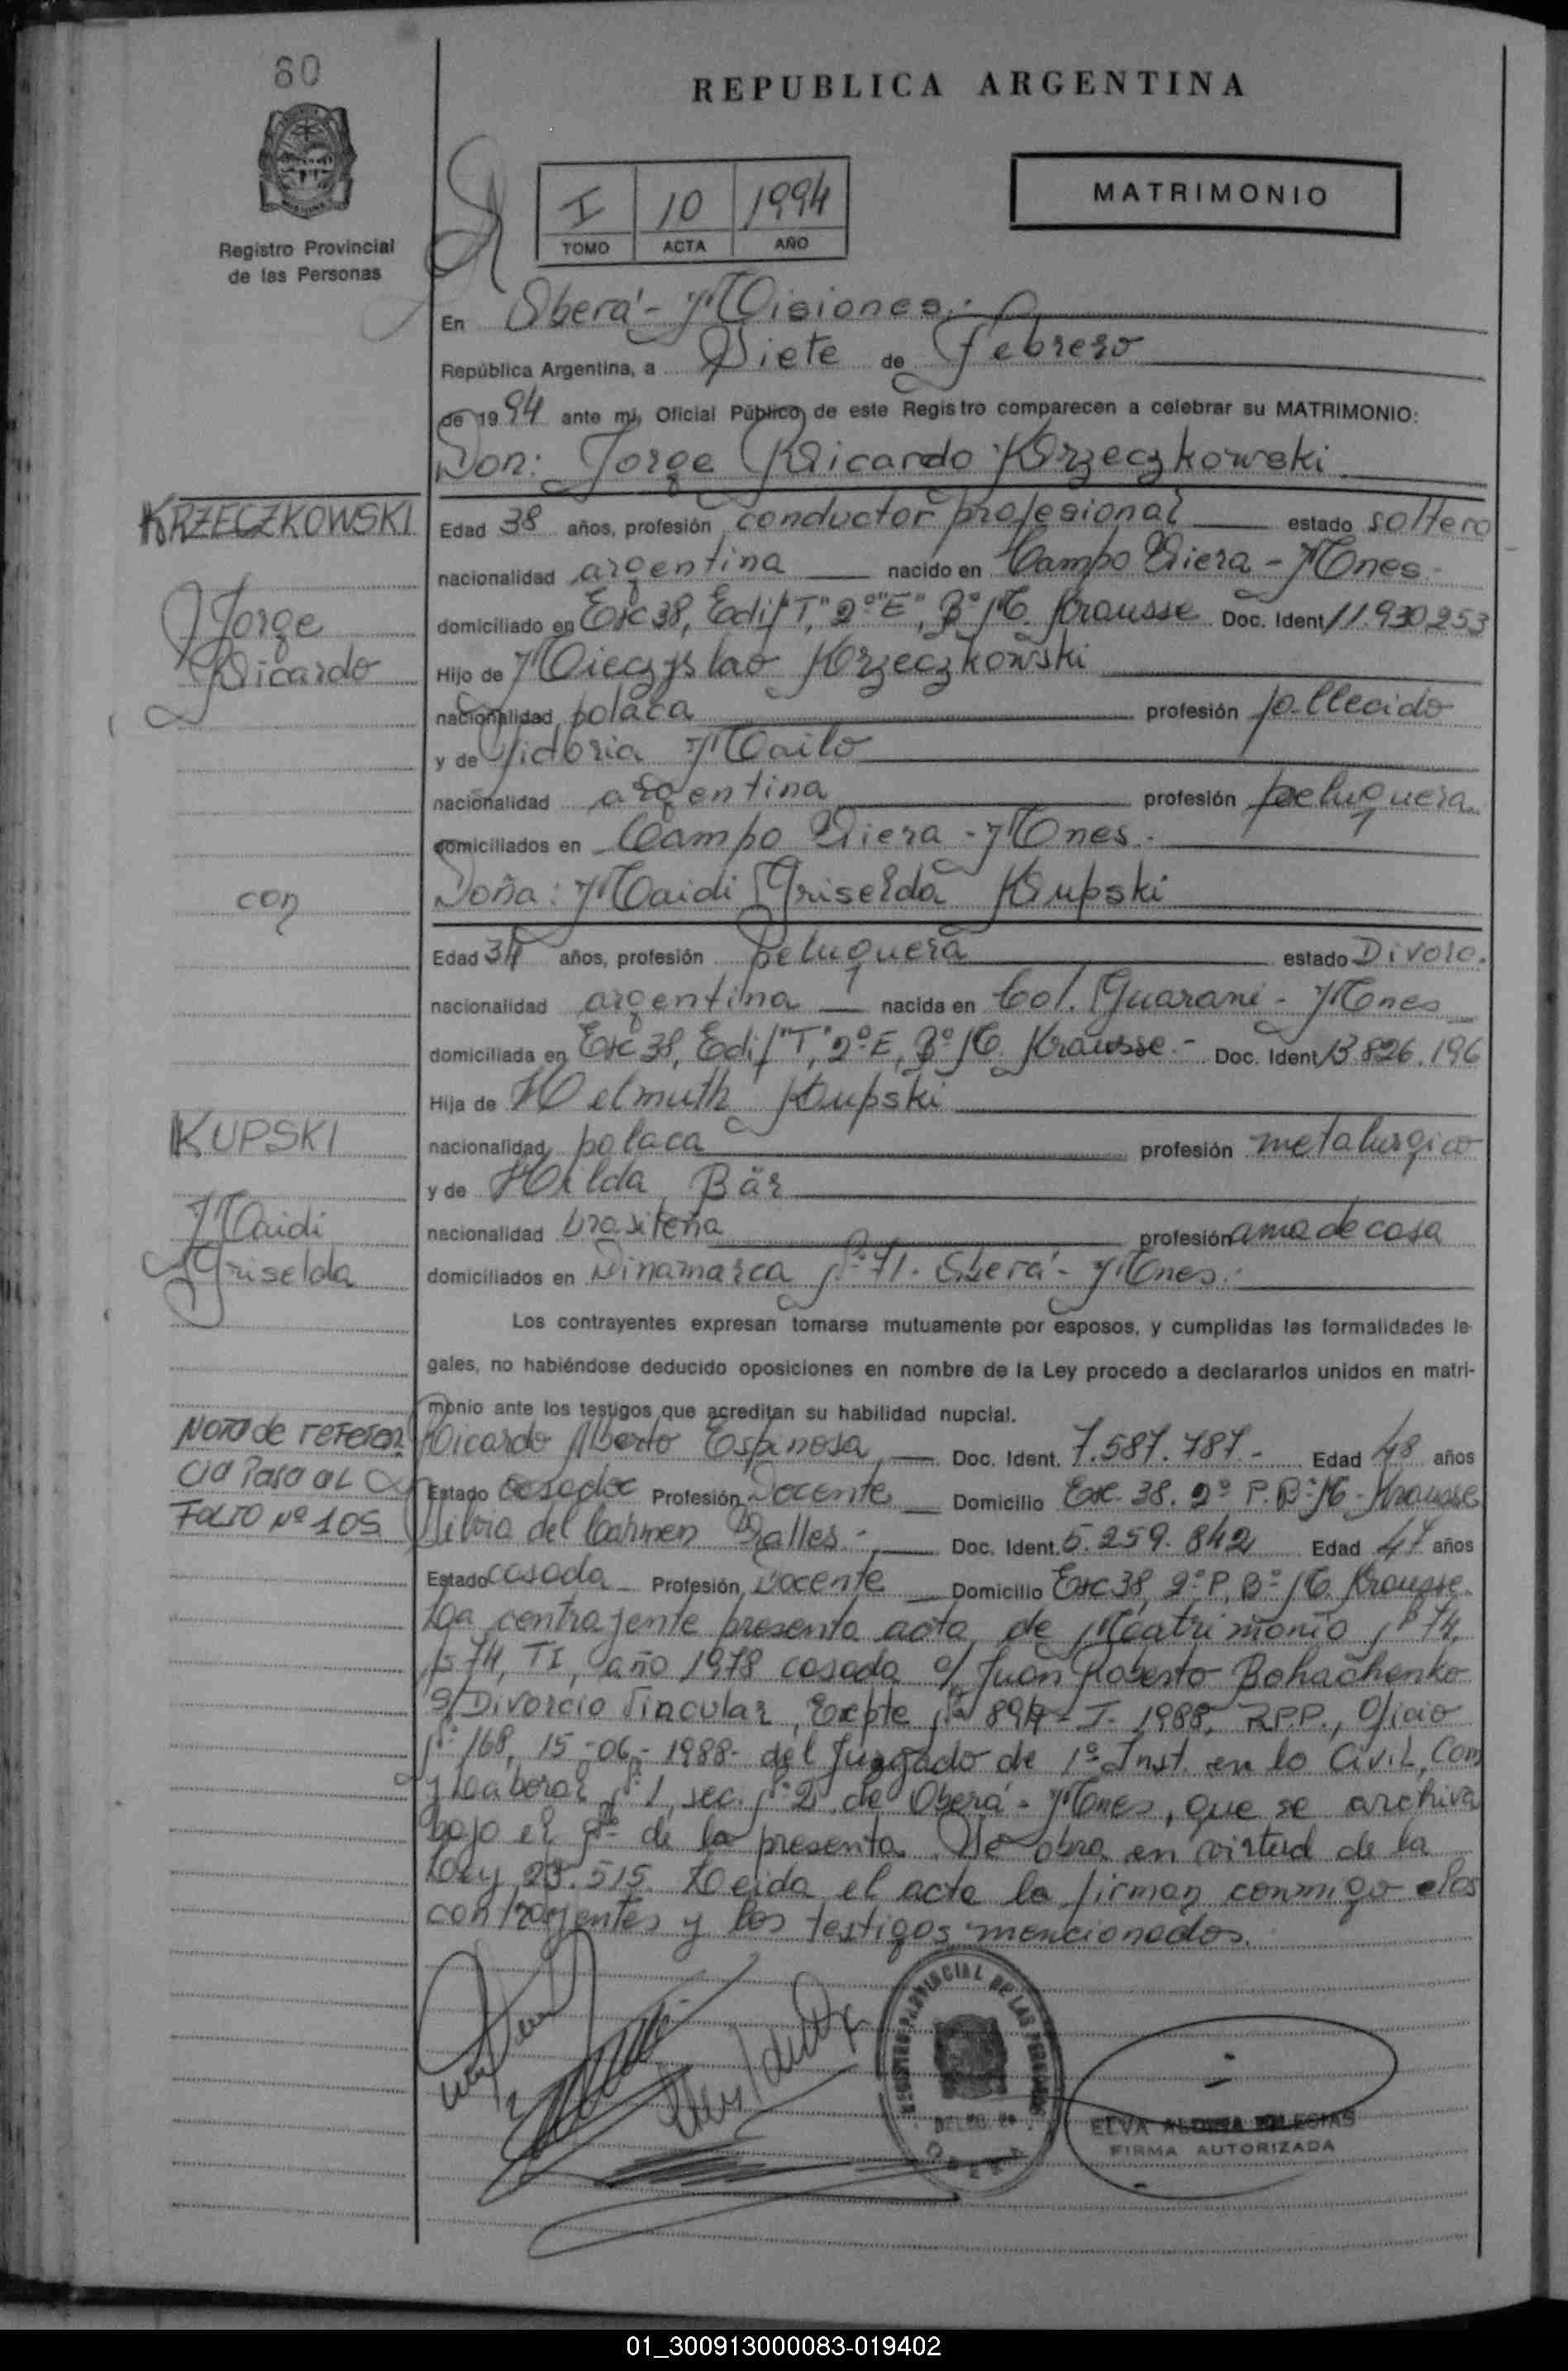 60
REPUBLICA ARGENTINA
Registro Provincial
de las Personas
I 10 1994
TOMO ACTA AÑO
MATRIMONIO
En Oberá - Misiones.-
República Argentina, a Siete de febrero
de 1994 ante mi, Oficial Público de este Registro comparecen a celebrar su MATRIMONIO:
Don: Jorge Ricardo Krzeczkowski
KRZECZKOWSKI
Jorge
Ricardo
Edad 38 años, profesión conductor profesional estado soltero
nacionalidad argentina nacido en Campo Viera - Mnes.
domiciliado en Esc 38, Edif "T", 2º "E", Bº N. Krausse Doc. Ident 11.930.253
Hijo de Mieczyslao Krzeczkowski
nacionalidad polaca profesión fallecido
y de Victoria Mailo
nacionalidad argentina profesión peluquera
domiciliados en Campo Viera - Mnes.
con
Doña: Maidi Griselda Kupski
Edad 34 años, profesión peluquera estado Divorc.
nacionalidad argentina nacida en Col. Guaraní - Mnes
domiciliada en Esc 38, Edif "T", 2º E, Bº N. Krausse.- Doc. Ident 13.826.196
Hija de Helmuth Kupski
KUPSKI
Maidi
Griselda
nacionalidad polaca profesión metalurgico
y de Hilda Bär
nacionalidad brasileña profesión ama de casa
domiciliados en Dinamarca Nº 71. Oberá - Mnes.
Los contrayentes expresan tomarse mutuamente por esposos, y cumplidas las formalidades le-
gales, no habiéndose deducido oposiciones en nombre de la Ley procedo a declararlos unidos en matri-
monio ante los testigos que acreditan su habilidad nupcial.
Nota de referen
cia Pasa al
Folio Nº 105
Ricardo Alberto Espinosa Doc. Ident. 7.587.787.- Edad 48 años
Estado casado Profesión Docente Domicilio Esc. 38. 2º P. Bº N. Krausse
Silvia del Carmen Salles.- Doc. Ident. 5.259.842 Edad 47 años
Estado casada Profesión Docente Domicilio Esc 38, 2º P, Bº N. Krausse.
La contrayente presenta acta de Matrimonio Nº 74,
Fº 74, TI, año 1978 casada c/ Juan Roberto Bohachenko
s/ Divorcio Vincular, Expte Nº 894-J-1988, R.P.P., Oficio
Nº 168, 15-06-1988- del Juzgado de 1º Inst. en lo Civil, Com
y Laboral Nº 1, sec. Nº 2 de Oberá - Mnes, que se archiva
bajo el Nº de la presenta. Se obra en virtud de la
Ley 23.515. Leida el acta la firman conmigo los
contrayentes y los testigos mencionados.
REGISTRO PROVINCIAL DE LAS PERSONAS
OBERA
IGLESIAS
FIRMA AUTORIZADA
01_300913000083-019402